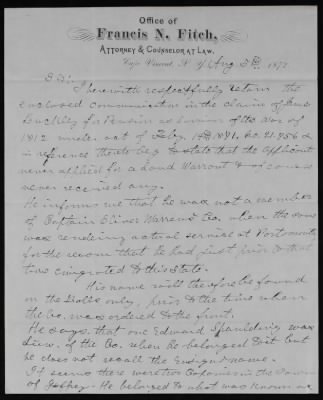 Office of
Francis N. Fitch,
ATTORNEY & COUNSELOR AT LAW.
Cape Vincent, N. Y. Aug 5th 1872
I herewith respectfully return the
enclosed communication in the claim of
for a Pension as Survivor of the War of
1812 under act of Feby. 14th 1871, No. 21.956 &
in reference thereto beg to state that the applicant
never applied for a Land Warrant & of course
never received any.
He informs me that he was not a member
of Captain Oliver Warren's Co. when the same
was rendering actual service at Portsmouth
for the reason that he had just prior to that
time emigrated to this State.
His name will therefore be found
on the Rolls only, prior to the time when
the Co. was ordered to the front.
He says that one Edward Spaulding was
Lieu. of the Co. when he belonged to it but
he does not recall the Ensign's name.
It seems there were two Companies in the Town
of Jaffrey. He belonged to what was known as